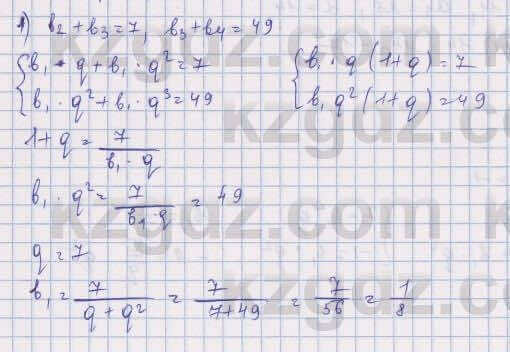 1) b₂ + b₃ = 7, b₃ + b₄ = 49
{ b₁ · q + b₁ · q² = 7
b₁ · q² + b₁ · q³ = 49
{ b₁ · q (1+q) = 7
b₁ q² (1+q) = 49
1+q = 7 / (b₁ · q)
b₁ · q² = 7 / (b₁ · q) = 49
q = 7
b₁ = 7 / (q + q²) = 7 / (7+49) = 7/56 = 1/8
kzgdz.com